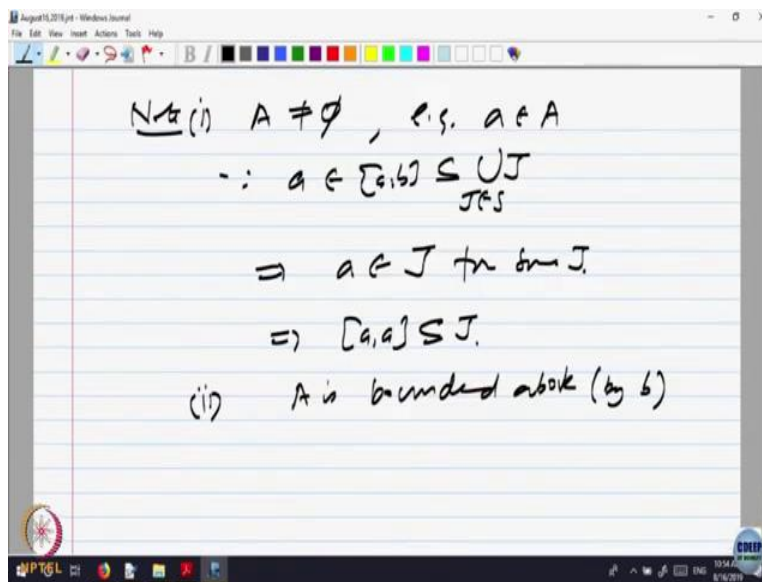 August16,2019.jnt - Windows Journal
File Edit View Insert Actions Tools Help
Note (i) A ≠ ∅, e.g. a ∈ A
∵ a ∈ [a,b] ⊆ ∪J
J∈S
⇒ a ∈ J for some J.
⇒ [a,a] ⊆ J.
(ii) A is bounded above (by b)
NPTEL
CDEEP
ENG
8/16/2019